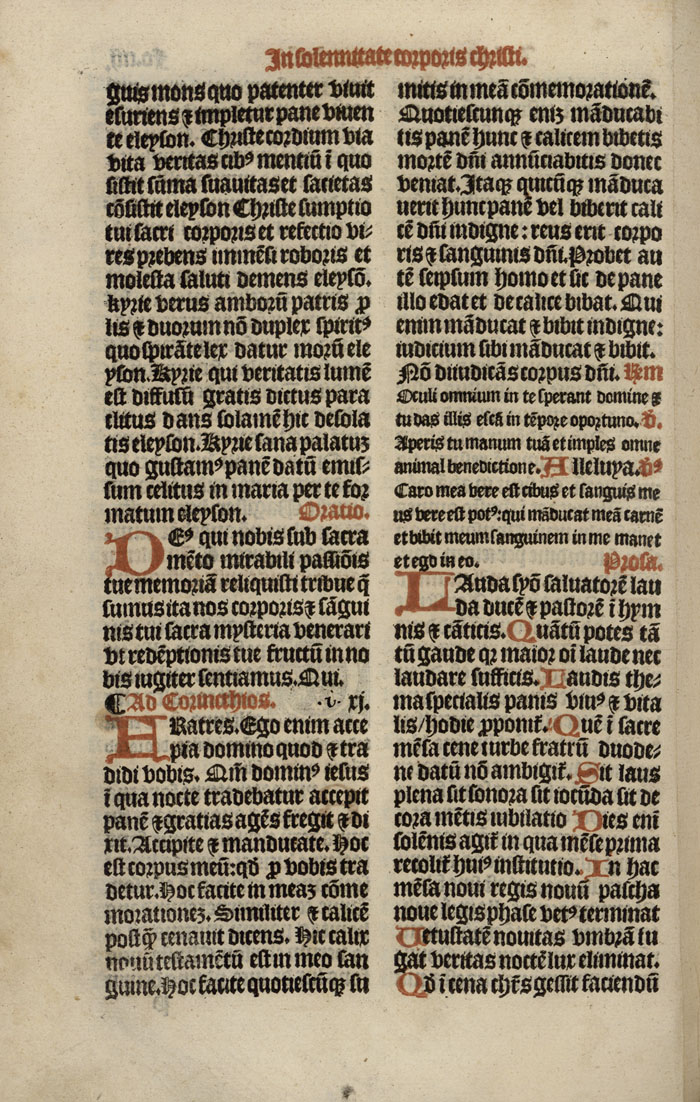 In solennitate corporis christi.
guis mons quo patenter viuit
esuriens ⁊ impletur pane viuen
te eleyson. Christe cordium via
vita veritas cibꝰ mentiū ī quo
sistit sūma suauitas et satietas
cōsistit eleyson Christe sumptio
tui sacri corporis et refectio vi⸗
res prebens immēsi roboris et
molesta saluti demens eleysō.
kyrie verus amborū patris ꝓ
lis ⁊ duorum nō duplex spiritꝰ
quo spirāte lex datur morū ele
yson. Kyrie qui veritatis lumē
est diffusū gratis dictus para
clitus dans solamē hic desola
tis eleyson. Kyrie sana palatuꝫ
quo gustamꝰ panē datū emis⸗
sum celitus in maria per te for
matum eleyson. Oratio.
DEꝰ qui nobis sub sacra
mēto mirabili passiōis
tue memoriā reliquisti tribue q̄
sumus ita nos corporis ⁊ sāgui
nis tui sacra mysteria venerari
vt redēptionis tue fructū in no
bis iugiter sentiamus. Qui.
¶ Ad Corinthios. .i. xj.
FRatres. Ego enim acce
pia domino quod ⁊ tra
didi vobis. Qm̄ dominꝰ iesus
ī qua nocte tradebatur accepit
panē ⁊ gratias agēs fregit ⁊ di
xit. Accipite ⁊ manducate. Hoc
est corpus meū: qd̄ ꝓ vobis tra
detur. Hoc facite in meaꝫ cōme
morationeꝫ. Similiter ⁊ calicē
postꝗ̄ cenauit dicens. Hic calix
nouū testamētū est in meo san
guine. Hoc facite quotiescūqꝫ su
mitis in meā cōmemorationē.
Quotiescunqꝫ enīꝫ māducabi
tis panē hunc ⁊ calicem bibetis
mortē dn̄i annūciabitis donec
veniat. Itaqꝫ quicūqꝫ māduca
uerit hunc panē vel biberit cali
cē dn̄i indigne: reus erit corpo
ris ⁊ sanguinis dn̄i. Probet au
tē seipsum homo et sic de pane
illo edat et de calice bibat. Qui
enim māducat ⁊ bibit indigne:
iudicium sibi māducat ⁊ bibit.
Nō diiudicās corpus dn̄i. Rm̄
Oculi omnium in te sperant domine ⁊
tu das illis escā in tēpore oportuno. v̄.
Aperis tu manum tuā et imples omne
animal benedictione. Alleluya. v̄ꝰ
Caro mea vere est cibus et sanguis me
us vere est potꝰ: qui māducat meā carnē
et bibit meum sanguinem in me manet
et ego in eo. Prosa.
LAuda syō saluatorē lau
da ducē ⁊ pastorē ī hym
nis ⁊ cāticis. Quātū potes tā
tū gaude qꝛ maior oī laude nec
laudare sufficis. Laudis the⸗
ma specialis panis viuꝰ ⁊ vita
lis/ hodie ꝓponiť. Quē ī sacre
mēsa cene turbe fratrū duode⸗
ne datū nō ambigiť. Sit laus
plena sit sonora sit iocūda sit de
cora mētis iubilatio Dies enī
solēnis agiť in qua mēse prima
recoliť huiꝰ institutio. In hac
mēsa noui regis nouū pascha
noue legis phase vetꝰ terminat
Uetustatē nouitas vmbrā fu
gat veritas noctē lux eliminat.
Qd̄ ī cena chr̄s gessit faciendū